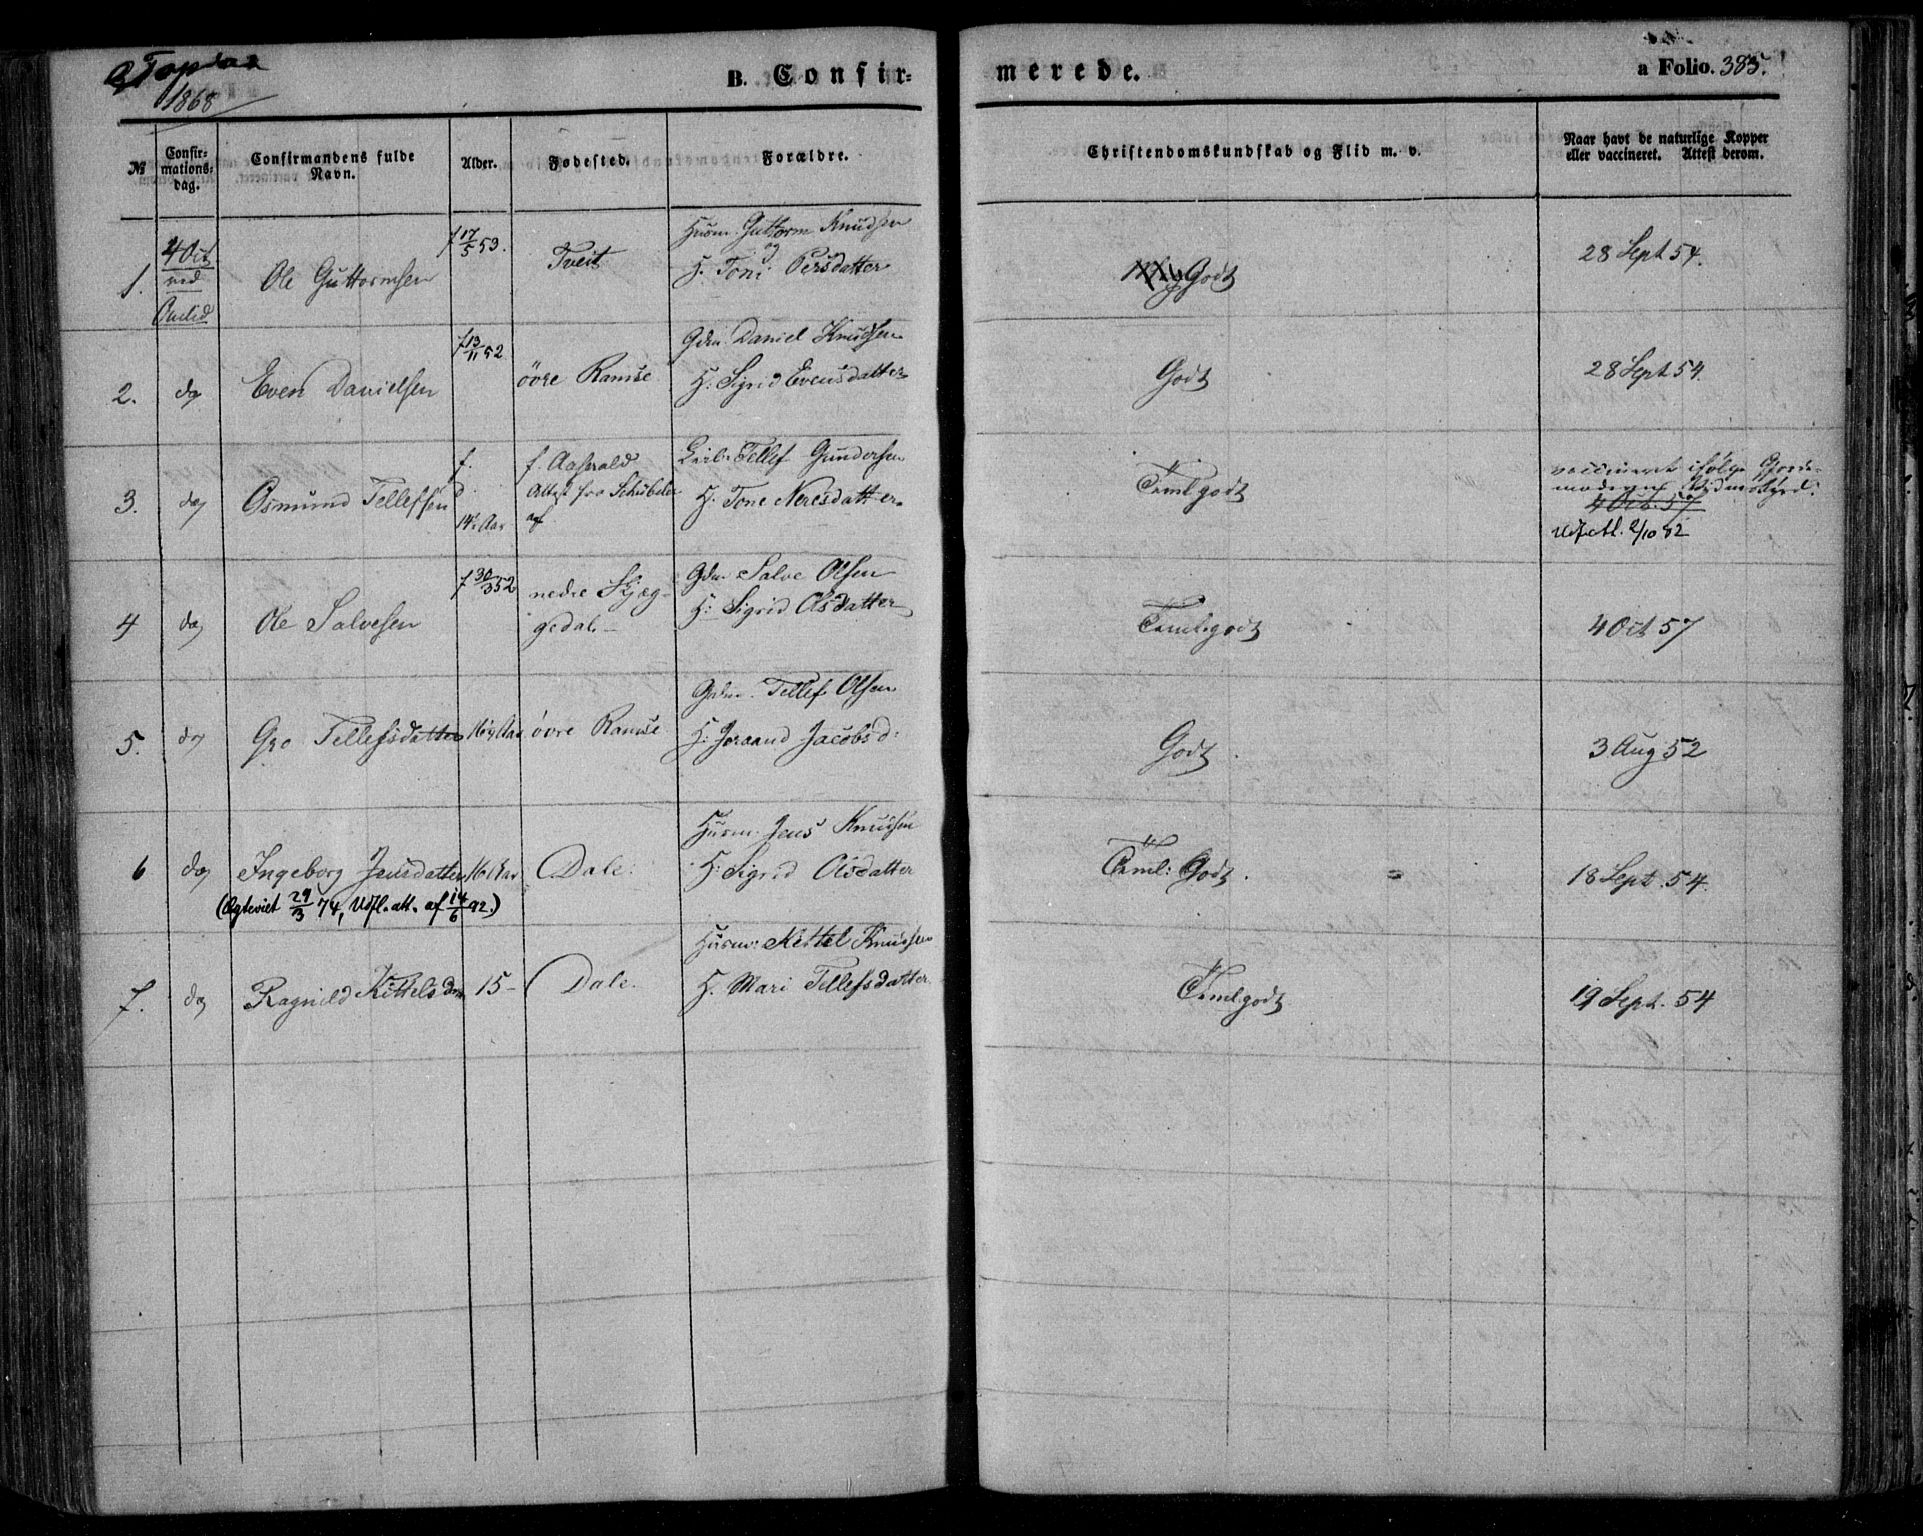 1868
B. Confirmerede. a Folio. 385.
No
Confirmationsdag.
Confirmandens fulde Navn.
Alder.
Fødested.
Forældre.
Christendomskundskab og Flid m. v.
Naar havt de naturlige Kopper eller vaccineret. Attest derom.
1. 4 Oct ved Ole Guttormsen f 17/5 53. Tveit Husm. Guttorm Knudsen og H. Toni Persdatter Godt 28 Sept 54.
2. do Even Danielsen f 13/11 52 övre Ramse Gdm. Daniel Knudsen H. Sigrid Evensdatter Godt 28 Sept 54.
3. do Osmund Tellefsen f. 14½ Aar f. Aaserald Attest fra Tellef Gundersen H. Tone Neresdatter Teml godt vaccineret ifølge Gjordemoderens Vidnesbyrd. 4 Oct. 57 Udfl.att. 2/10 82
4 do Ole Salvesen f 30/3 52 nedre Skjæggedal. Gdm. Salve Olsen H. Sigrid Olsdatter Teml. godt 4 Oct 57
5. do Gro Tellefsdatter 16½ Aar övre Ramse Gdm. Tellef Olsen H. Joraand Jacobsd: Godt 3 Aug 52
6 do Ingeborg Jensdatter 16 Aar Dale. Husm. Jens Knudsen H. Sigrid Olsdatter Teml: Godt. 18 Sept. 54.
(Egteviet 29/3 74, Udfl. att. af 14/6 92.)
7. do Ragnild Kittelsd. 15 - Dale. Husm: Kettel Knudsen H. Mari Tellefsdatter Teml godt 19 Sept. 54